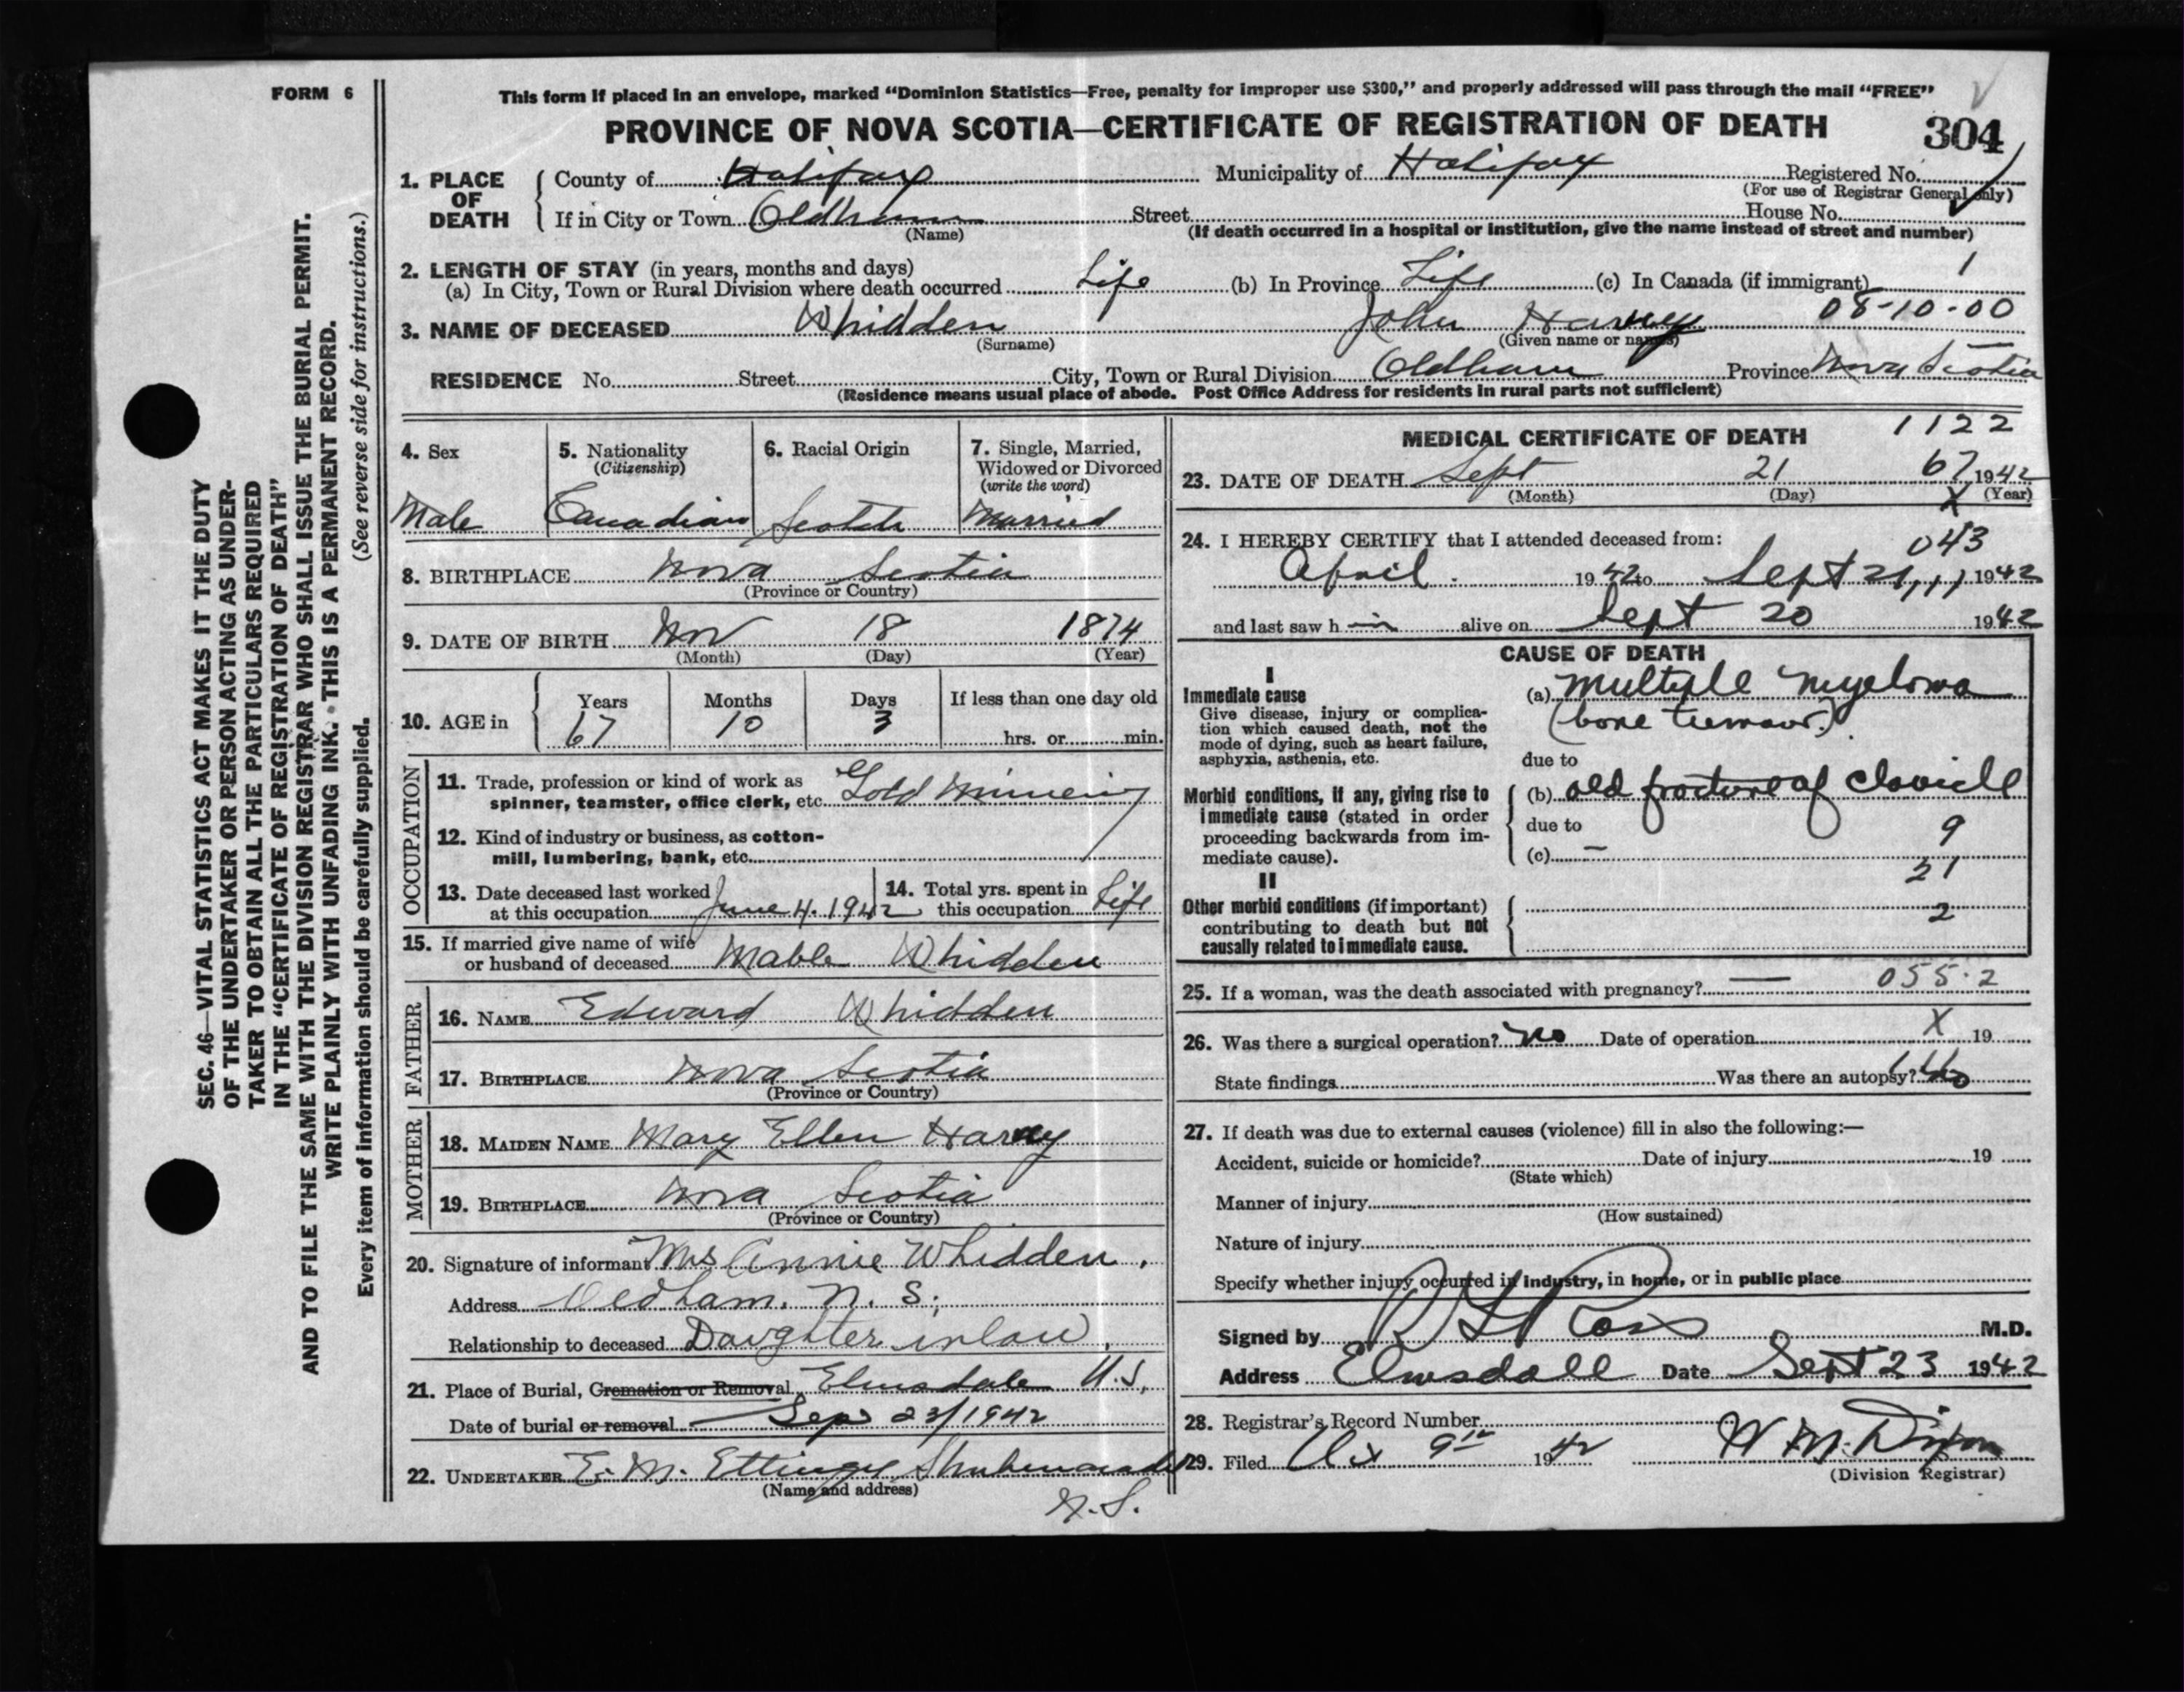 FORM 6
This form if placed in an envelope, marked “Dominion Statistics—Free, penalty for improper use $300,” and properly addressed will pass through the mail “FREE”
PROVINCE OF NOVA SCOTIA—CERTIFICATE OF REGISTRATION OF DEATH
304
1. PLACE OF DEATH
County of Halifax Municipality of Halifax Registered No.
(For use of Registrar General only)
If in City or Town Oldham Street House No.
(Name) (If death occurred in a hospital or institution, give the name instead of street and number)
2. LENGTH OF STAY (in years, months and days)
(a) In City, Town or Rural Division where death occurred Life (b) In Province Life (c) In Canada (if immigrant) 1
08-10-00
3. NAME OF DECEASED Whidden John Harvey
(Surname) (Given name or names)
RESIDENCE No. Street City, Town or Rural Division Oldham Province Nova Scotia
(Residence means usual place of abode. Post Office Address for residents in rural parts not sufficient)
4. Sex
Male
5. Nationality
(Citizenship)
Canadian
6. Racial Origin
Scotch
7. Single, Married,
Widowed or Divorced
(write the word)
Married
8. BIRTHPLACE Nova Scotia
(Province or Country)
9. DATE OF BIRTH Nov 18 1874
(Month) (Day) (Year)
10. AGE in
Years Months Days If less than one day old
67 10 3 hrs. or min.
OCCUPATION
11. Trade, profession or kind of work as
spinner, teamster, office clerk, etc. Gold Mineing
12. Kind of industry or business, as cotton-
mill, lumbering, bank, etc.
13. Date deceased last worked
at this occupation June 4. 1942
14. Total yrs. spent in
this occupation Life
15. If married give name of wife
or husband of deceased Mable Whidden
FATHER
16. NAME Edward Whidden
17. BIRTHPLACE Nova Scotia
(Province or Country)
MOTHER
18. MAIDEN NAME Mary Ellen Harvey
19. BIRTHPLACE Nova Scotia
(Province or Country)
20. Signature of informant Mrs Annie Whidden.
Address Oldham. N. S.
Relationship to deceased Daughter inlaw
21. Place of Burial, Cremation or Removal Elmsdale N.S.
Date of burial or removal Sep 23/1942
22. UNDERTAKER E. M. Ettinger Shubenacadie
(Name and address)
N.S.
MEDICAL CERTIFICATE OF DEATH
1122
67
23. DATE OF DEATH Sept 21 1942
(Month) (Day) (Year)
X
24. I HEREBY CERTIFY that I attended deceased from:
043
April 1942 to Sept 21, 1942
and last saw h im alive on Sept 20 1942
CAUSE OF DEATH
I
Immediate cause
Give disease, injury or complica-
tion which caused death, not the
mode of dying, such as heart failure,
asphyxia, asthenia, etc.
(a) Multiple Myeloma
(bone tumour.)
due to
Morbid conditions, if any, giving rise to
immediate cause (stated in order
proceeding backwards from im-
mediate cause).
(b) old fracture of clavicle
due to 9
(c) —
21
II
Other morbid conditions (if important)
contributing to death but not
causally related to immediate cause.
2
25. If a woman, was the death associated with pregnancy? — 055.2
26. Was there a surgical operation? No Date of operation X 19
State findings Was there an autopsy? No
27. If death was due to external causes (violence) fill in also the following:—
Accident, suicide or homicide? Date of injury 19
(State which)
Manner of injury
(How sustained)
Nature of injury
Specify whether injury occurred in industry, in home, or in public place
Signed by M.D.
Address Elmsdale Date Sept 23 1942
28. Registrar's Record Number
29. Filed Oct 9th 1942 W M. Dixon
(Division Registrar)
SEC. 46—VITAL STATISTICS ACT MAKES IT THE DUTY
OF THE UNDERTAKER OR PERSON ACTING AS UNDER-
TAKER TO OBTAIN ALL THE PARTICULARS REQUIRED
IN THE “CERTIFICATE OF REGISTRATION OF DEATH”
AND TO FILE THE SAME WITH THE DIVISION REGISTRAR WHO SHALL ISSUE THE BURIAL PERMIT.
WRITE PLAINLY WITH UNFADING INK. THIS IS A PERMANENT RECORD.
Every item of information should be carefully supplied. (See reverse side for instructions.)